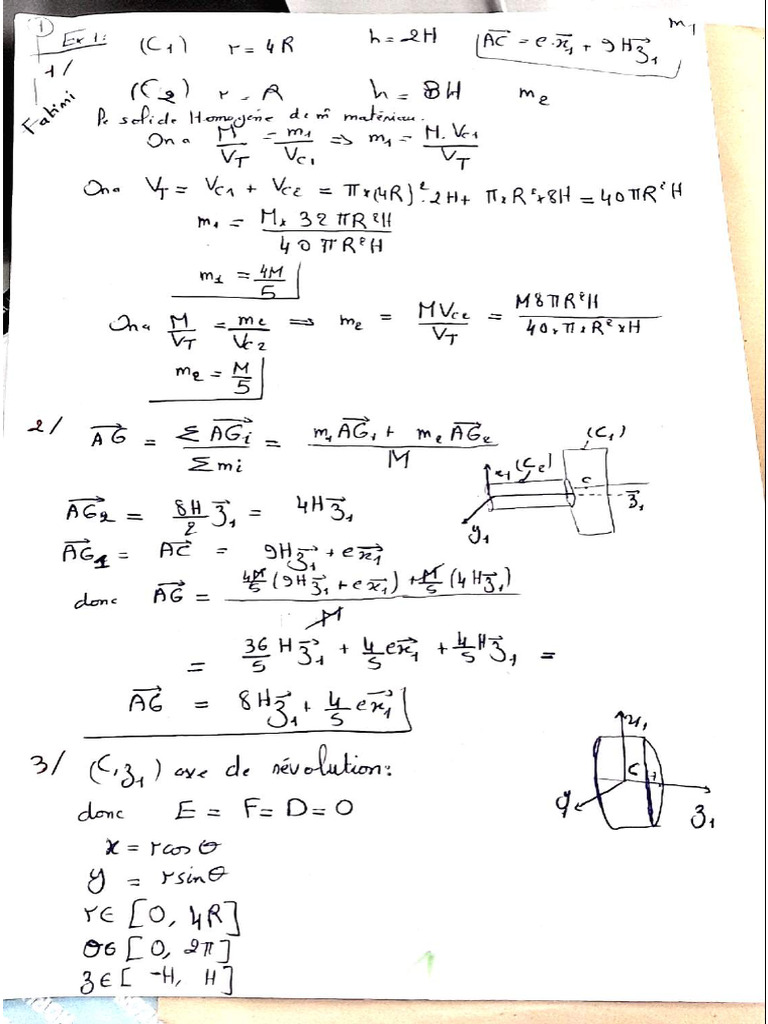 1) Ex 1: (C₁) r = 4R h = 2H AC⃗ = e.x⃗₁ + 9Hz⃗₁ m₁
1/
Fahimi
(C₂) r = R h = 8H m₂
solide Homogène de m̂ matériau.
On a M/V_T = m₁/V_C₁ ⇒ m₁ = M.V_C₁/V_T
On a V_T = V_C₁ + V_C₂ = π×(4R)².2H + π×R²×8H = 40πR²H
m₁ = M×32πR²H / 40πR²H
m₁ = 4M/5
On a M/V_T = m₂/V_C₂ ⇒ m₂ = MV_C₂/V_T = M8πR²H / 40×π×R²×H
m₂ = M/5
2/ AG⃗ = ΣAG⃗i / Σmi = (m₁AG⃗₁ + m₂AG⃗₂) / M
(C₁)
x₁ (C₂) C z⃗₁
y₁
AG⃗₂ = 8H/2 z⃗₁ = 4Hz⃗₁
AG⃗₁ = AC⃗ = 9Hz⃗₁ + ex⃗₁
donc AG⃗ = (4M/5 (9Hz⃗₁ + ex⃗₁) + M/5 (4Hz⃗₁)) / M
= 36/5 Hz⃗₁ + 4/5 ex⃗₁ + 4/5 Hz⃗₁ =
AG⃗ = 8Hz⃗₁ + 4/5 ex⃗₁
3/ (C,z₁) axe de révolution:
x₁ C y z₁
donc E = F = D = 0
x = rcos θ
y = rsinθ
r∈ [0, 4R]
θ∈ [0, 2π]
z∈ [-H, H]
1